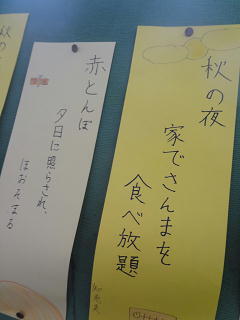 秋の夜
家でさんまを
食べ放題
赤とんぼ
夕日に照らされ、
ほおそまる
秋の